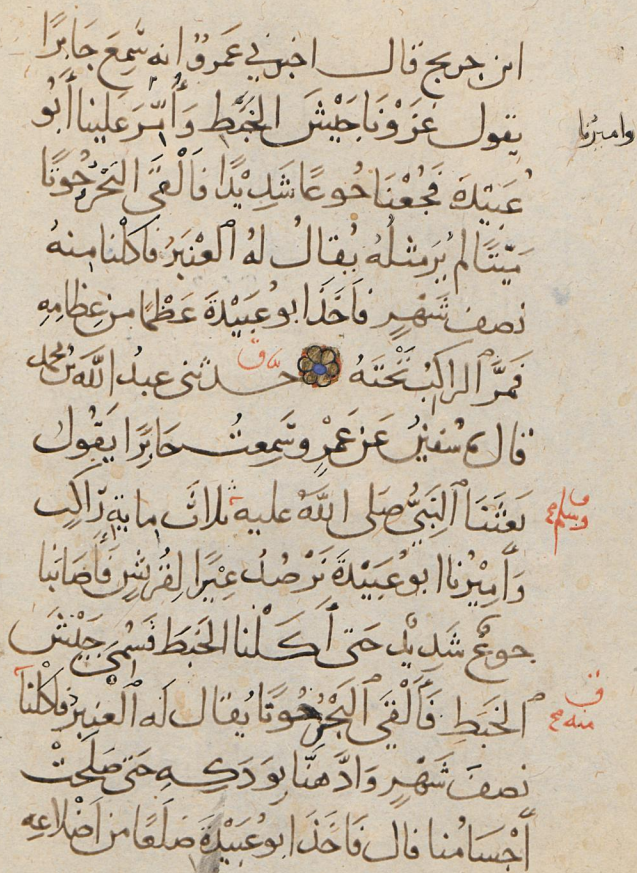 ابن جريج قال اخبرني عمرو انه سَمِعَ جَابِرًا
يقول غَزَوْنَا جَيْشَ الخَبَطِ وَأُمِّرَ علينا أَبُو
وامیرُنا
عُبَيْدَةَ فَجُعْنَا جُوعًا شَدِيْدًا فَأَلْقَى البَحْرُ حُوتًا
مَيّتًا لم يُرَ مثلُهُ يُقالُ لهُ العَنْبَرُ فاكلْنا منهُ
نصفَ شَهْرٍ فاخَذَ ابو عُبَيْدَةَ عَظْمًا من عِظامِهِ
فَمَرَّ الراكِبُ تَحْتَهُ حدثنى عبدُ الله بن محمد
قال ما سُفيْنُ عَن عَمْرٍو سَمِعتُ جَابِرًا يَقُول
بَعَثَنَا النَبِيُّ صَلى اللهُ عليه ثلاثَ مايةِ رَاكِبٍ
وسلم
وَأَمِيْرُنا ابو عُبَيْدَةَ نَرْصُدُ عِيْرًا لِقُرَيْشٍ فَأَصَابَنا
جوعٌ شَدِيدٌ حَتى أَكَلْنا الخَبَطَ فَسُمِّىَ جَيْشَ
الخَبَطِ فَأَلْقَى البَحْرُ حُوتًا يُقال لَه العَنْبرُ فاكلْنا
منه
نصفَ شَهْرٍ وَادَّهَنَّا بِوَدَكِهِ حَتى صَلَحَتْ
أَجْسَامُنا قال فَاخَذَ ابو عُبَيْدَةَ ضلَعًا من اَضْلاعِهِ